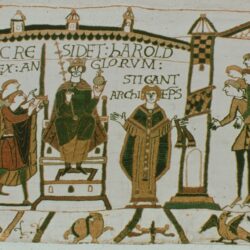 CRE SIDET: hAROLD
IX: AN GLORVM:
STIGANT
ARChI EPS